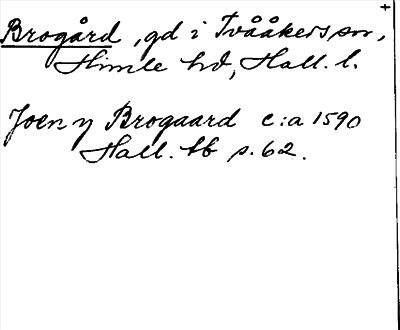 Brogård, gd i Tvååkers sn,
Himle hd, Hall. l.
Joen y Brogaard c:a 1590
Hall. tb s. 62.